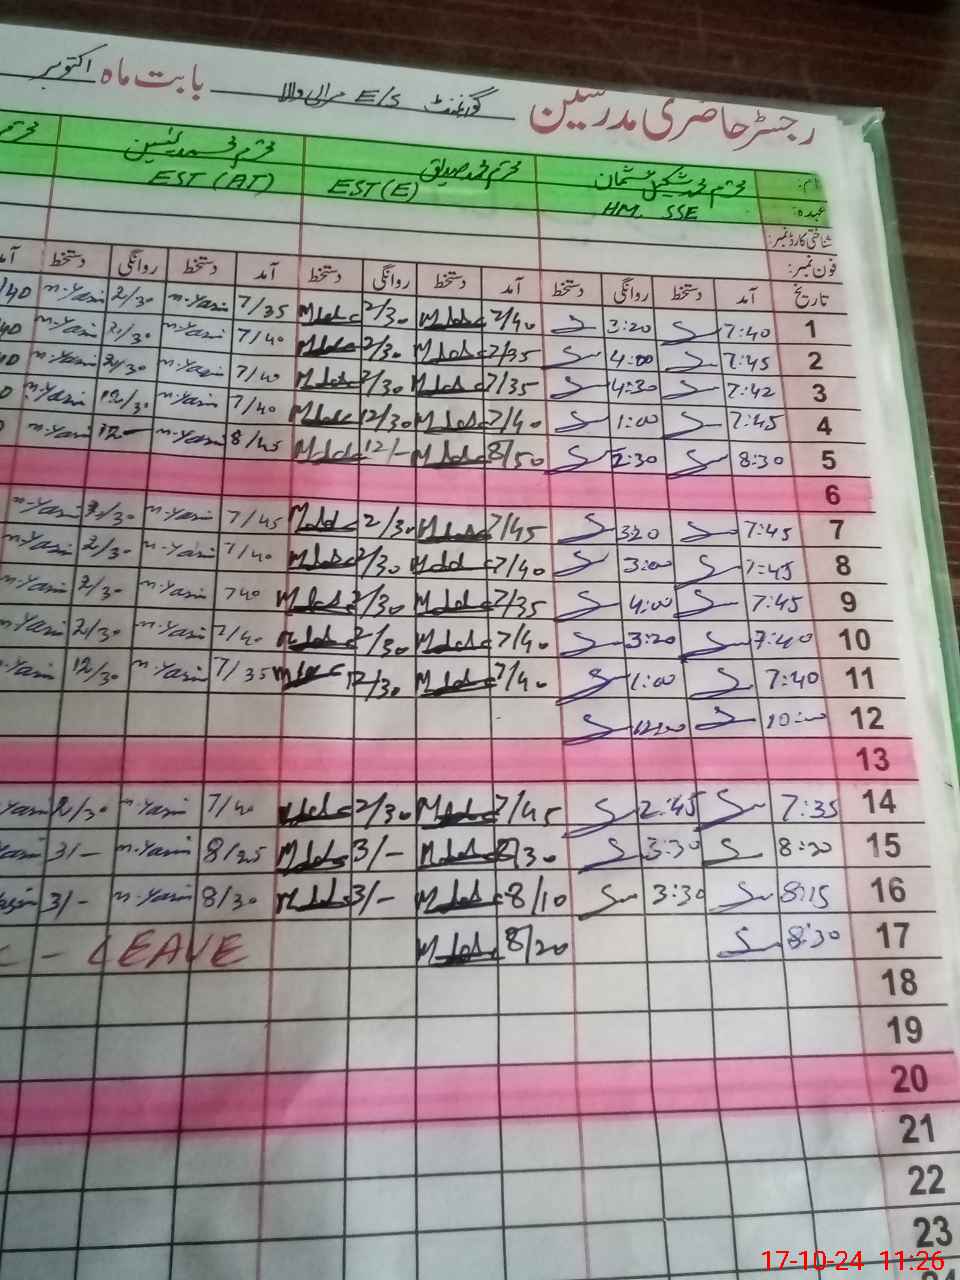 رجسٹر حاضری مدرسین گورنمنٹ E/S مرالی والا بابت ماہ اکتوبر
نام: محترم محمد شکیل عثمان محترم محمد صدیق محترم محمد یٰسین محترم
عہدہ: HM. SSE EST(E) EST(AT)
شناختی کارڈ نمبر:
فون نمبر:
تاریخ آمد دستخط روانگی دستخط آمد دستخط روانگی دستخط آمد دستخط روانگی دستخط آمد
1 7:40 3:20 7/40 2/30 7/35 m.Yasin 2/30 m.Yasin /40
2 7:45 4:00 7/35 2/30 7/40 m.Yasin 2/30 m.Yasin
3 7:42 4:30 7/35 2/30 7/40 m.Yasin 2/30 m.Yasin
4 7:45 1:00 7/40 12/30 7/40 m.Yasin 12/30 m.Yasin
5 8:30 2:30 8/50 12/- 8/45 m.Yasin 12 m.Yasin
6
7 7:45 3:20 7/45 2/30 7/45 m.Yasin 2/30 m.Yasin
8 7:45 3:00 7/40 2/30 7/40 m.Yasin 2/30 m.Yasin
9 7:45 4:00 7/35 2/30 7 40 m.Yasin 2/30 m.Yasin
10 7:40 3:20 7/40 2/30 7/40 m.Yasin 2/30 m.Yasin
11 7:40 1:00 7/40 12/30 7/35 m.Yasin 12/30 m.Yasin
12 10:00 12:00
13
14 7:35 2:45 7/45 2/30 7/40 m.Yasin 2/30
15 8:20 3:30 8/30 3/- 8/25 m.Yasin 3/-
16 8:15 3:30 8/10 3/- 8/30 m.Yasin 3/-
17 8:30 8/20 C - LEAVE
18
19
20
21
22
23
17-10-24 11:26